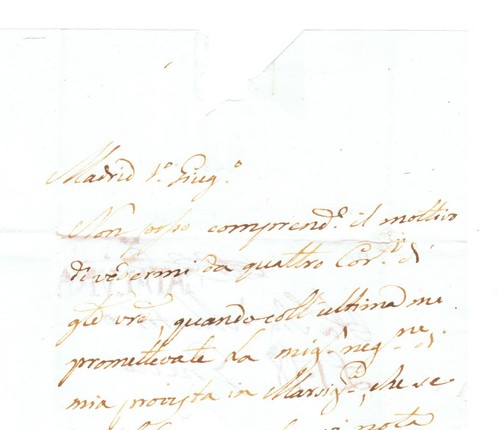 Madrid 1.º Giug.º
Non posso comprend.e il mottivo
di vedermi da quattro Cor.ri di
gte vre, quando coll' ultima me
promettevate la mig.r neg.ne di
mia provista in Marsig.a, che se
nota